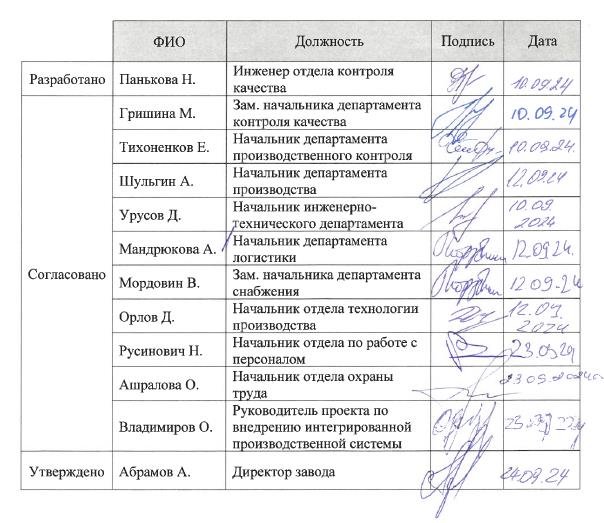 ФИО Должность Подпись Дата
Разработано Панькова Н. Инженер отдела контроля
качества 10.09.24
Гришина М. Зам. начальника департамента
контроля качества 10.09.24
Тихоненков Е. Начальник департамента
производственного контроля 10.09.24.
Шульгин А. Начальник департамента
производства 12.09.24
Урусов Д. Начальник инженерно-
технического департамента 10.09
2024
Согласовано Мандрюкова А. Начальник департамента
логистики 12.09.24.
Мордовин В. Зам. начальника департамента
снабжения 12.09.24
Орлов Д. Начальник отдела технологии
производства 12.09.
2024
Русинович Н. Начальник отдела по работе с
персоналом 23.09.24
Ашралова О. Начальник отдела охраны
труда 23.09.2024г.
Владимиров О. Руководитель проекта по
внедрению интегрированной
производственной системы
Утверждено Абрамов А. Директор завода 24.09.24